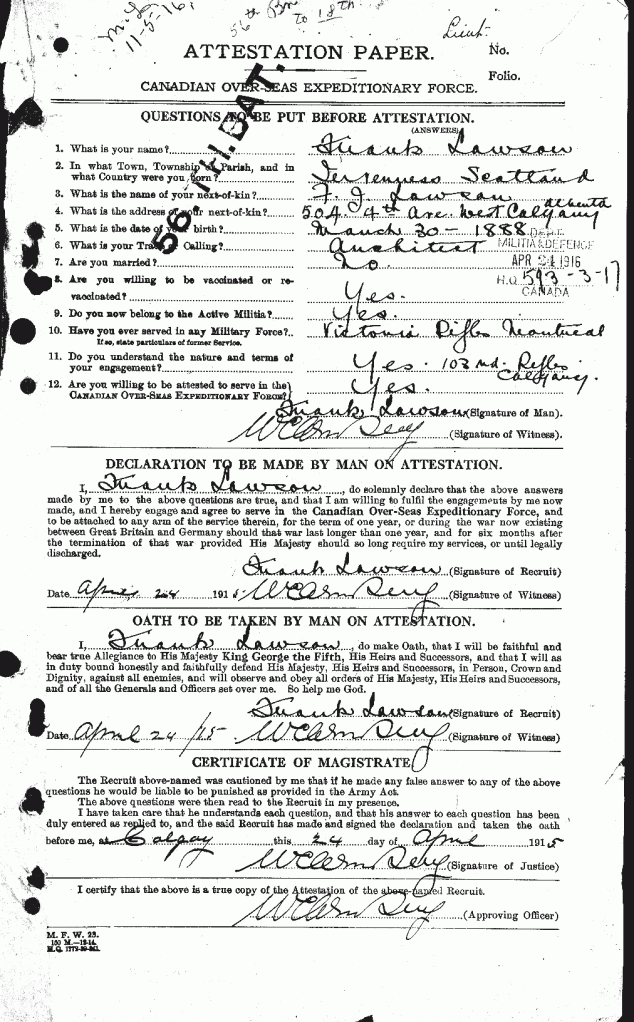 11-5-16
56th Bn to 18th
Lieut.
ATTESTATION PAPER.
No.
Folio.
CANADIAN OVER-SEAS EXPEDITIONARY FORCE.
56TH.BAT.
QUESTIONS TO BE PUT BEFORE ATTESTATION.
(ANSWERS)
1. What is your name? Frank Lawson
2. In what Town, Township or Parish, and in
what Country were you born? Scotland
3. What is the name of your next-of-kin? F. J. Lawson
4. What is the address of your next-of-kin? 504. 4th Ave. West Calgary Alberta
5. What is the date of your birth? March 30 - 1888
6. What is your Trade or Calling? Architect
DEPT.
MILITIA & DEFENCE
7. Are you married? No
APR 21 1916
8. Are you willing to be vaccinated or re-
vaccinated? Yes.
H.Q. 593-3-17
CANADA
9. Do you now belong to the Active Militia? Yes.
10. Have you ever served in any Military Force? Victoria Rifles Montreal
If so, state particulars of former Service.
11. Do you understand the nature and terms of
your engagement? Yes. 103rd. Rifles Calgary.
12. Are you willing to be attested to serve in the
CANADIAN OVER-SEAS EXPEDITIONARY FORCE? Yes.
Frank Lawson (Signature of Man).
(Signature of Witness).
DECLARATION TO BE MADE BY MAN ON ATTESTATION.
I, Frank Lawson, do solemnly declare that the above answers
made by me to the above questions are true, and that I am willing to fulfil the engagements by me now
made, and I hereby engage and agree to serve in the Canadian Over-Seas Expeditionary Force, and
to be attached to any arm of the service therein, for the term of one year, or during the war now existing
between Great Britain and Germany should that war last longer than one year, and for six months after
the termination of that war provided His Majesty should so long require my services, or until legally
discharged.
Frank Lawson (Signature of Recruit)
Date April 24 1915 (Signature of Witness)
OATH TO BE TAKEN BY MAN ON ATTESTATION.
I, Frank Lawson, do make Oath, that I will be faithful and
bear true Allegiance to His Majesty King George the Fifth, His Heirs and Successors, and that I will as
in duty bound honestly and faithfully defend His Majesty, His Heirs and Successors, in Person, Crown and
Dignity, against all enemies, and will observe and obey all orders of His Majesty, His Heirs and Successors,
and of all the Generals and Officers set over me. So help me God.
Frank Lawson (Signature of Recruit)
Date April 24/15 (Signature of Witness)
CERTIFICATE OF MAGISTRATE
The Recruit above-named was cautioned by me that if he made any false answer to any of the above
questions he would be liable to be punished as provided in the Army Act.
The above questions were then read to the Recruit in my presence.
I have taken care that he understands each question, and that his answer to each question has been
duly entered as replied to, and the said Recruit has made and signed the declaration and taken the oath
before me, at Calgary this 24 day of April 1915
(Signature of Justice)
I certify that the above is a true copy of the Attestation of the above-named Recruit.
(Approving Officer)
M. F. W. 23.
150 M.-12-14.
H.Q. 1772-39-841.